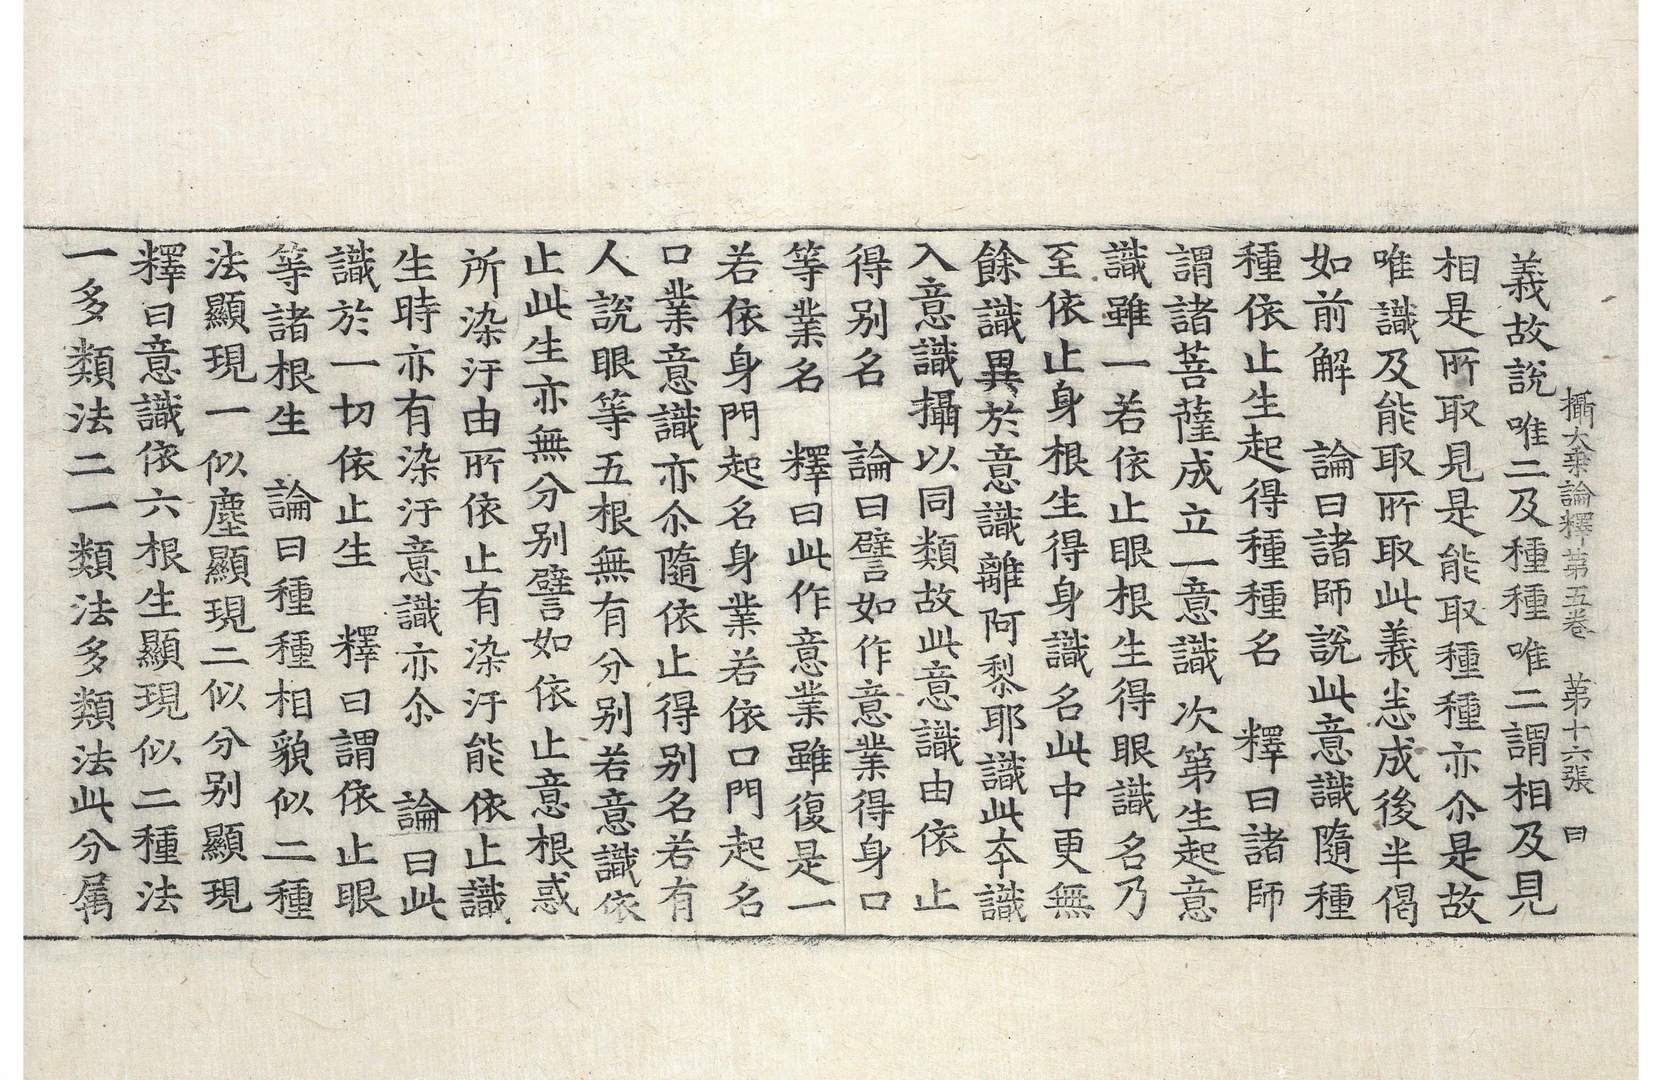 攝大乘論釋第五卷　第十六張　曰
義故說唯二及種種唯二謂相及見
相是所取見是能取種種亦尒是故
唯識及能取所取此義悉成後半偈
如前解　論曰諸師說此意識隨種
種依止生起得種種名　釋曰諸師
謂諸菩薩成立一意識次第生起意
識雖一若依止眼根生得眼識名乃
至依止身根生得身識名此中更無
餘識異於意識離阿黎耶識此夲識
入意識攝以同類故此意識由依止
得別名　論曰譬如作意業得身口
等業名　釋曰此作意業雖復是一
若依身門起名身業若依口門起名
口業意識亦尒隨依止得別名若有
人說眼等五根無有分別若意識依
止此生亦無分別譬如依止意根惑
所染汙由所依止有染汙能依止識
生時亦有染汙意識亦尒　論曰此
識於一切依止生　釋曰謂依止眼
等諸根生　論曰種種相貌似二種
法顯現一似塵顯現二似分別顯現
釋曰意識依六根生顯現似二種法
一多類法二一類法多類法此分属